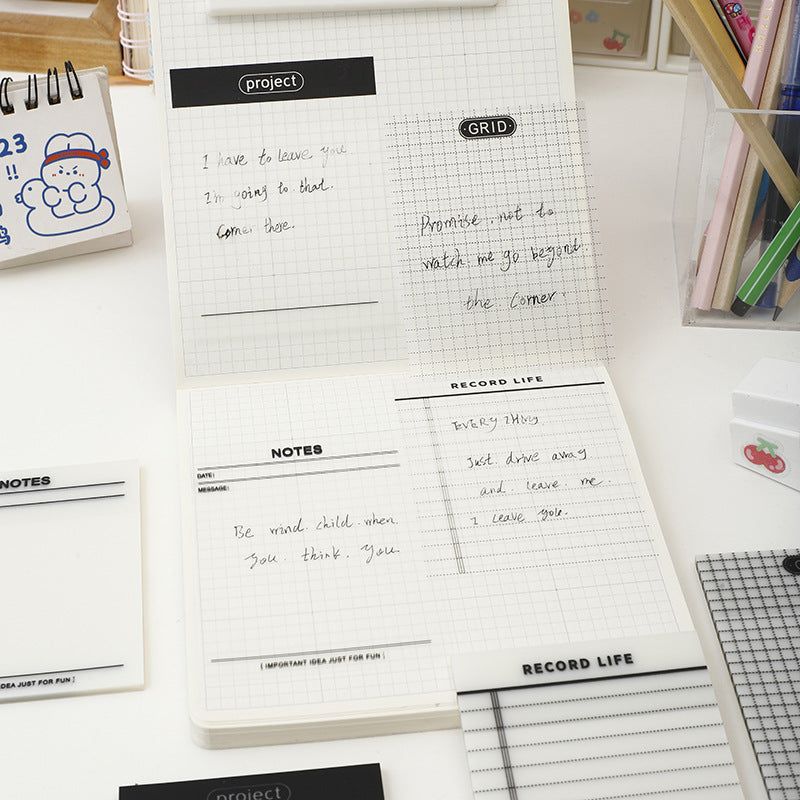 project
I have to leave you
I'm going to that.
Corner there.
GRID
Promise not to
watch me go beyond
the Corner.
23
!!
NOTES
DATE:
MESSAGE:
Be mind child when
you think you
[ IMPORTANT IDEA JUST FOR FUN ]
RECORD LIFE
EVERY THING
Just drive away
and leave me.
I leave you.
NOTES
DEA JUST FOR FUN ]
RECORD LIFE
project